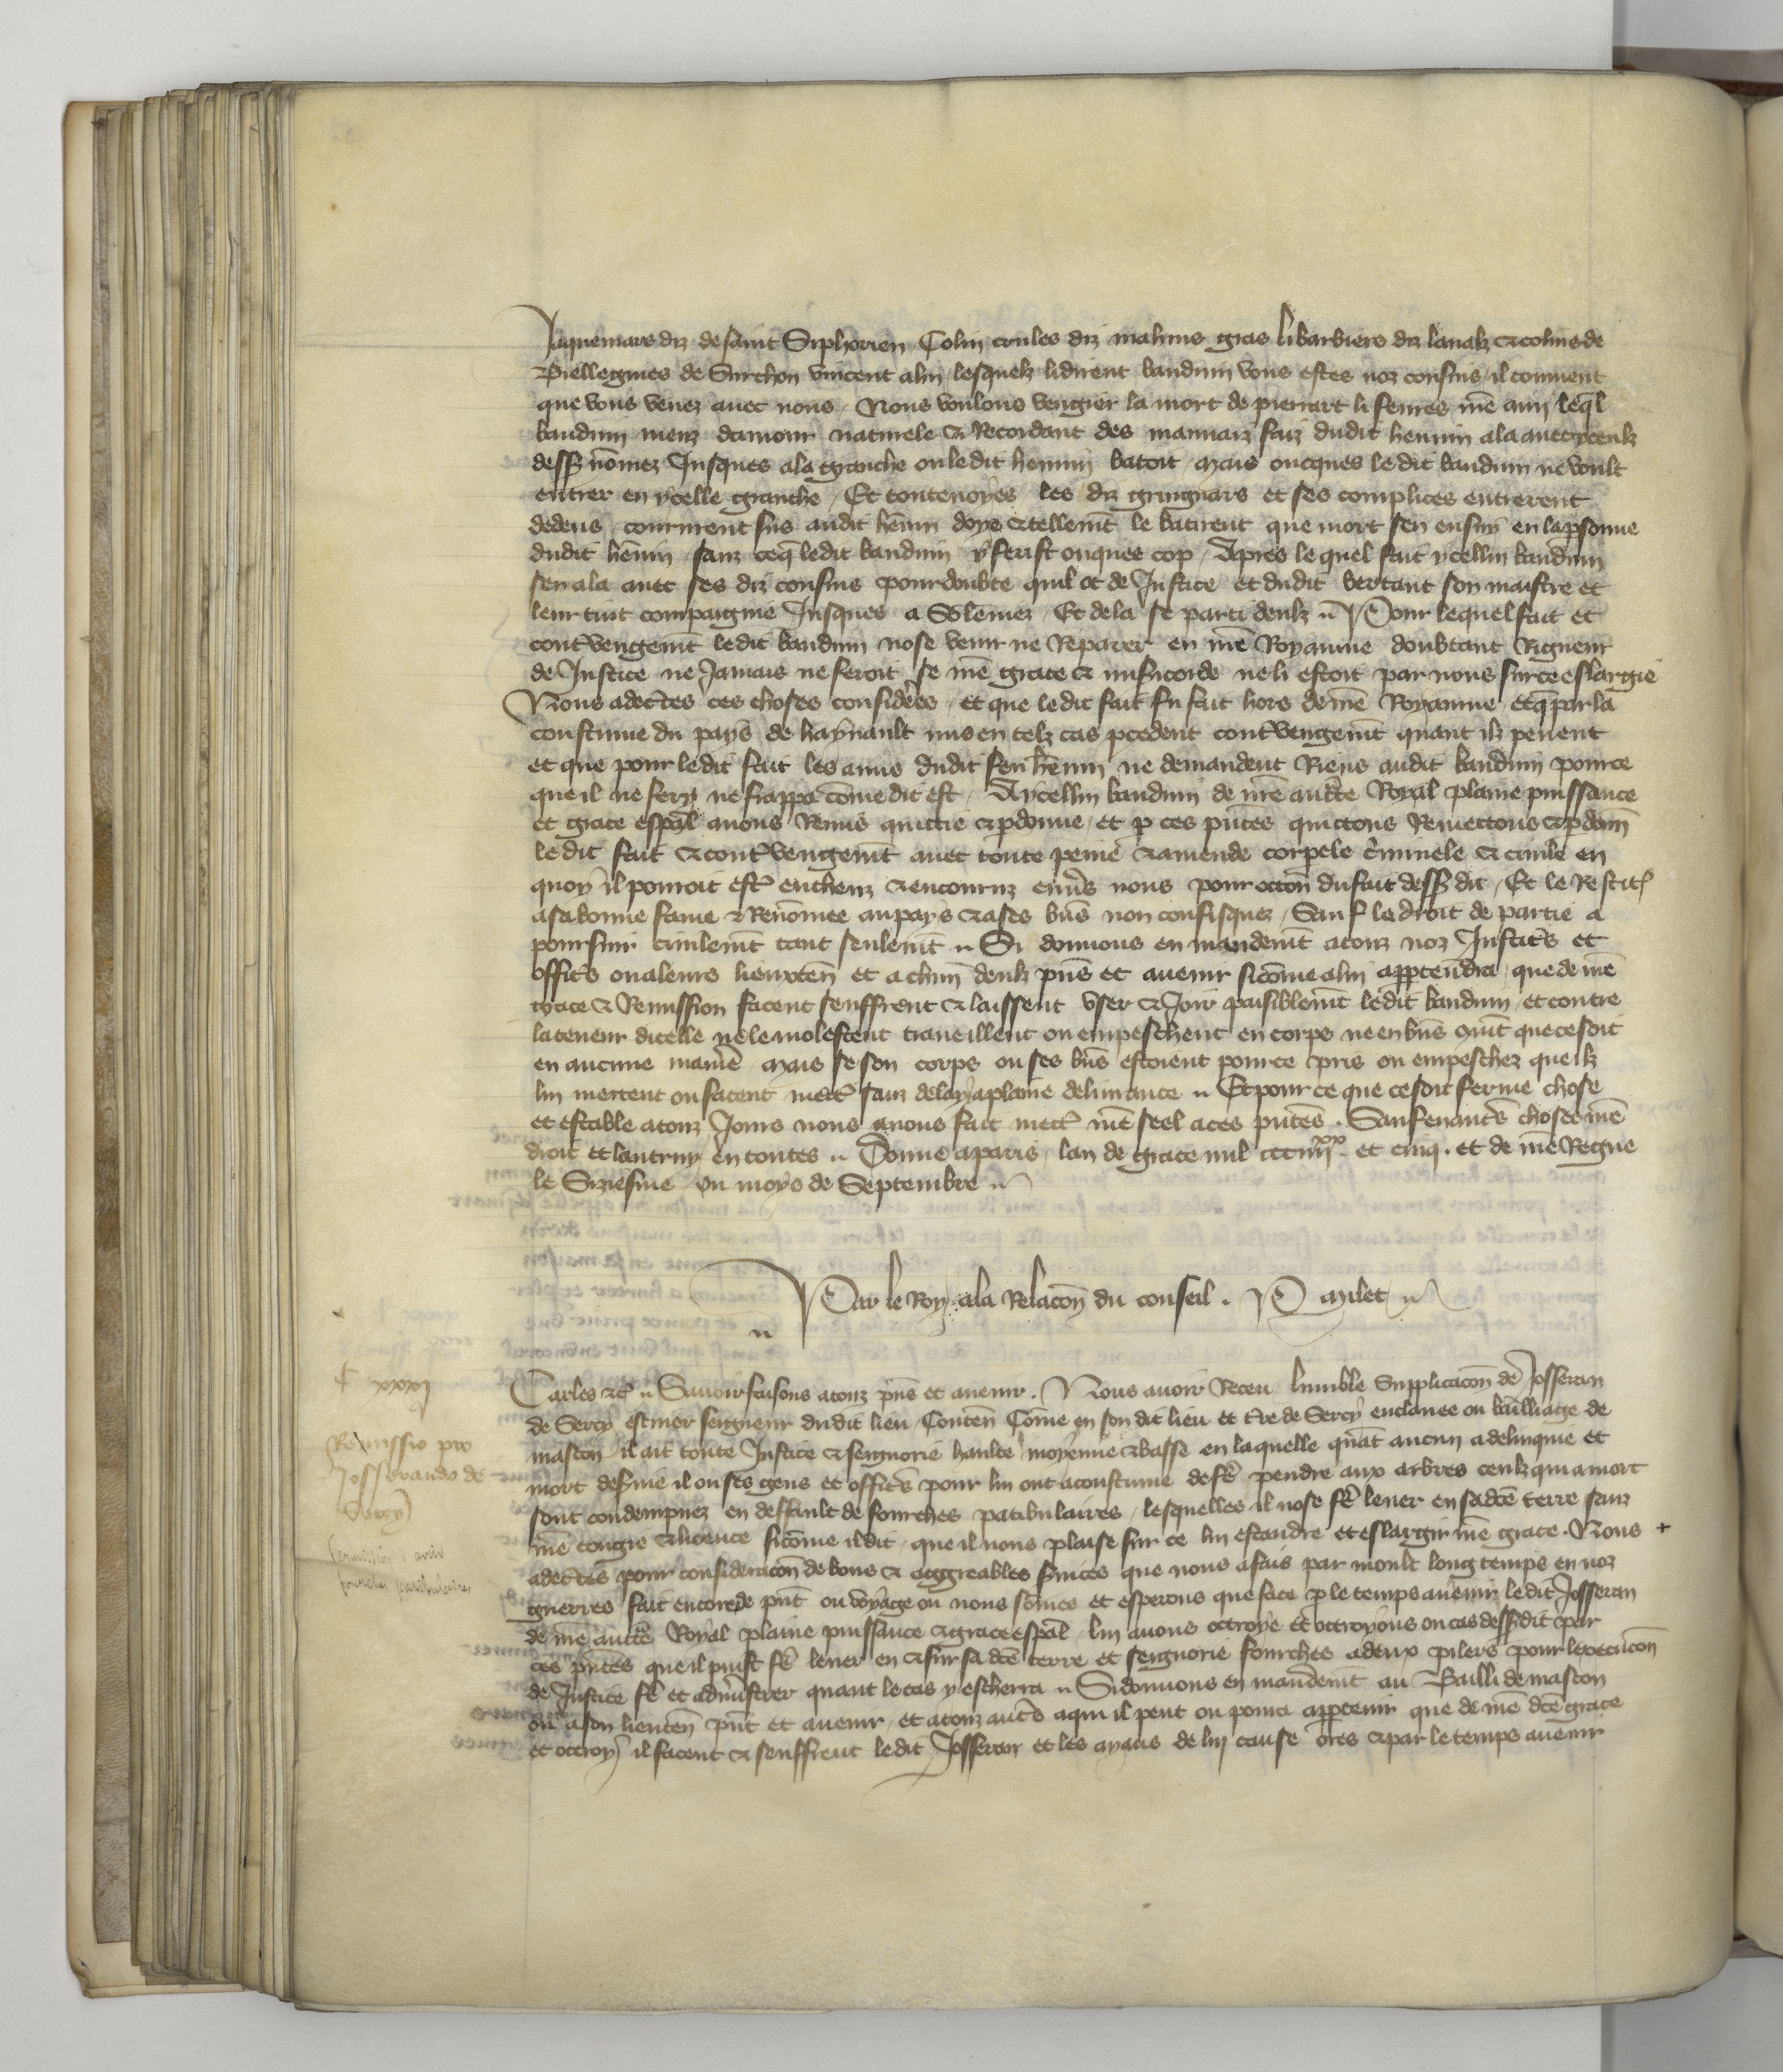 Jaquemars diz de saint Siphorien Colin croules diz mahius gras li barbiers diz lanalz & colins de
Piellegnies de Surchon vincent a lui lesquelz li dirent baudum vous estes noz cousins il convient
que vous venez avec nous. Nous voulons vengier la mort de pierrart li fevres nr̄e ami leq̄l
baudum menz damour naturele & Recordant des mauvaiz faiz dudit hennin ala avec yceulz
dess nōmez Jusques a la granche ou ledit hennin batoit mais oncques ledit baudum ne voult
entrer en ycelle granche. Et toutevoyes les diz gringnars et ses complices entrerent
dedens coururent sus audit hēnin doye & tellemt̄ le batirent que mort sen ensuy en la psonne
dudit hēnin sanz ceq̄ ledit baudum y ferist onques cop. Apres le quel fait ycellui baudum
sen ala avec ses diz cousins pour doubte quil ot de Justice et dudit bertaut son maistre et
leur tint compaignie Jusques a Solemez. Et dela se parti deulz. Pour lequel fait et
cont̄vengemt̄ ledit baudum nose venir ne Reparer en nr̄e Royaume doubtant Rigueur
de Justice ne Jamais ne feroit se nr̄e grace & misicorde ne li estoit par nous sur ce eslargie
Nous adec̄tes ces choses considerees et que ledit fait fu fait hors de nr̄e Royaume et q̄ par la
coustume du pays de haynault nus en telz cas pcedent cont̄vengemt̄ quant ilz pevent
et que pour ledit fait les amis dudit feu hēnin ne demandent Riens audit baudum pource
que il ne fery ne frappa cōme dit est. A ycellui baudum de nr̄e auct̄e Royal plaine puissance
et grace espāl avons Remis quictie & pdonne et p ces pn̄tes quictons Remettons & pdonn̄
ledit fait & cont̄vengemt̄ avec toute peine & amende corpele c̄minele & civile en
quoy il pourroit estr̄ encheuz & encouruz env̄s nous pour occōn du fait dess dit. Et le Restit̄
a sa bonne fame & Renōmee au pays & a ses bn̄s non confisquez. Sauf le droit de partie a
poursuir civilemt̄ tant seulemt̄. Si donnons en mandemt̄ a touz noz Justic̄s et
offic̄s ou a leurs lieuxten̄ et a chūn deulz pn̄s et avenir sicōme a lui apptendra que de nr̄e
grace & Remission facent seuffrent & laissent user & Joir paisiblemt̄ ledit baudum et contre
la teneur dicelle ne le molestent traveillent ou empeschent en corps ne en bn̄s cōmt̄ que ce soit
en aucune manr̄e mais se son corps ou ses bn̄s estoient pource pris ou empeschez que ilz
lui mettent ou facent mettr̄ sanz delay a plaine delivrance. Et pour ce que ce soit ferme chose
et estable a touz Jours nous avons fait mettr̄ nr̄e seel a ces pn̄tes. Sauf en aut̄s choses nr̄e
droit et lautruy en toutes. Donne a paris lan de grace mil ccc iiii xx. et cinq. et de nr̄e Regne
le Siziesme ou moys de Septembre
Par le Roy a la Relacōn du conseil. P Milet
xxxj
Remissio pro
Josserando de
Sercy
Permission d'avoir
fourches patibulaires
Carles &c̄ Savoir faisons a touz pn̄s et avenir. Nous avoir Receu lumble Supplicacōn de Josseran
de Sercy escuier seigneur dudit lieu Conten̄ Cōme en son dit lieu et tr̄e de Sercy enclavee ou bailliage de
mascon il ait toute Justice & seignorie haulte moyenne & basse en laquelle quāt aucun a delinque et
mort desvie il ou ses gens et offic̄s pour lui ont acoustume de fēr pendre aux arbres ceulz qui a mort
sont condempnez en deffault de fourches patibulaires lesquelles il nose fēr lever en sa dc̄e terre sanz
nr̄e congie & licence sicōme il dit que il nous plaise sur ce lui estandre et eslargir nr̄e grace. Nous +
adec̄tes pour consideracōn de bons & aggreables s̄vices que nous a fais par moult long temps en noz
guerres fait encore de pn̄t ou voyage ou nous sōmes et esperons que face p le temps avenir ledit Josseran
de nr̄e auct̄e Royal plaine puissance & grace espāl lui avons octroye et octroyons ou cas dess dit par
ces pn̄tes que il puist fēr lever en & sur sa dc̄e terre et seignorie fourches a deux pilers pour lexecucōn
de Justice fēr et adm̄istrer quant le cas y escherra. Si donnons en mandemt̄ au Bailli de mascon
ou a son lieuten̄ pn̄t et avenir et a touz aut̄s a qui il peut ou pourra apptenir que de nr̄e dc̄e grace
et octroy il facent & seuffrent ledit Josseran et les ayans de lui cause ores & par le temps avenir